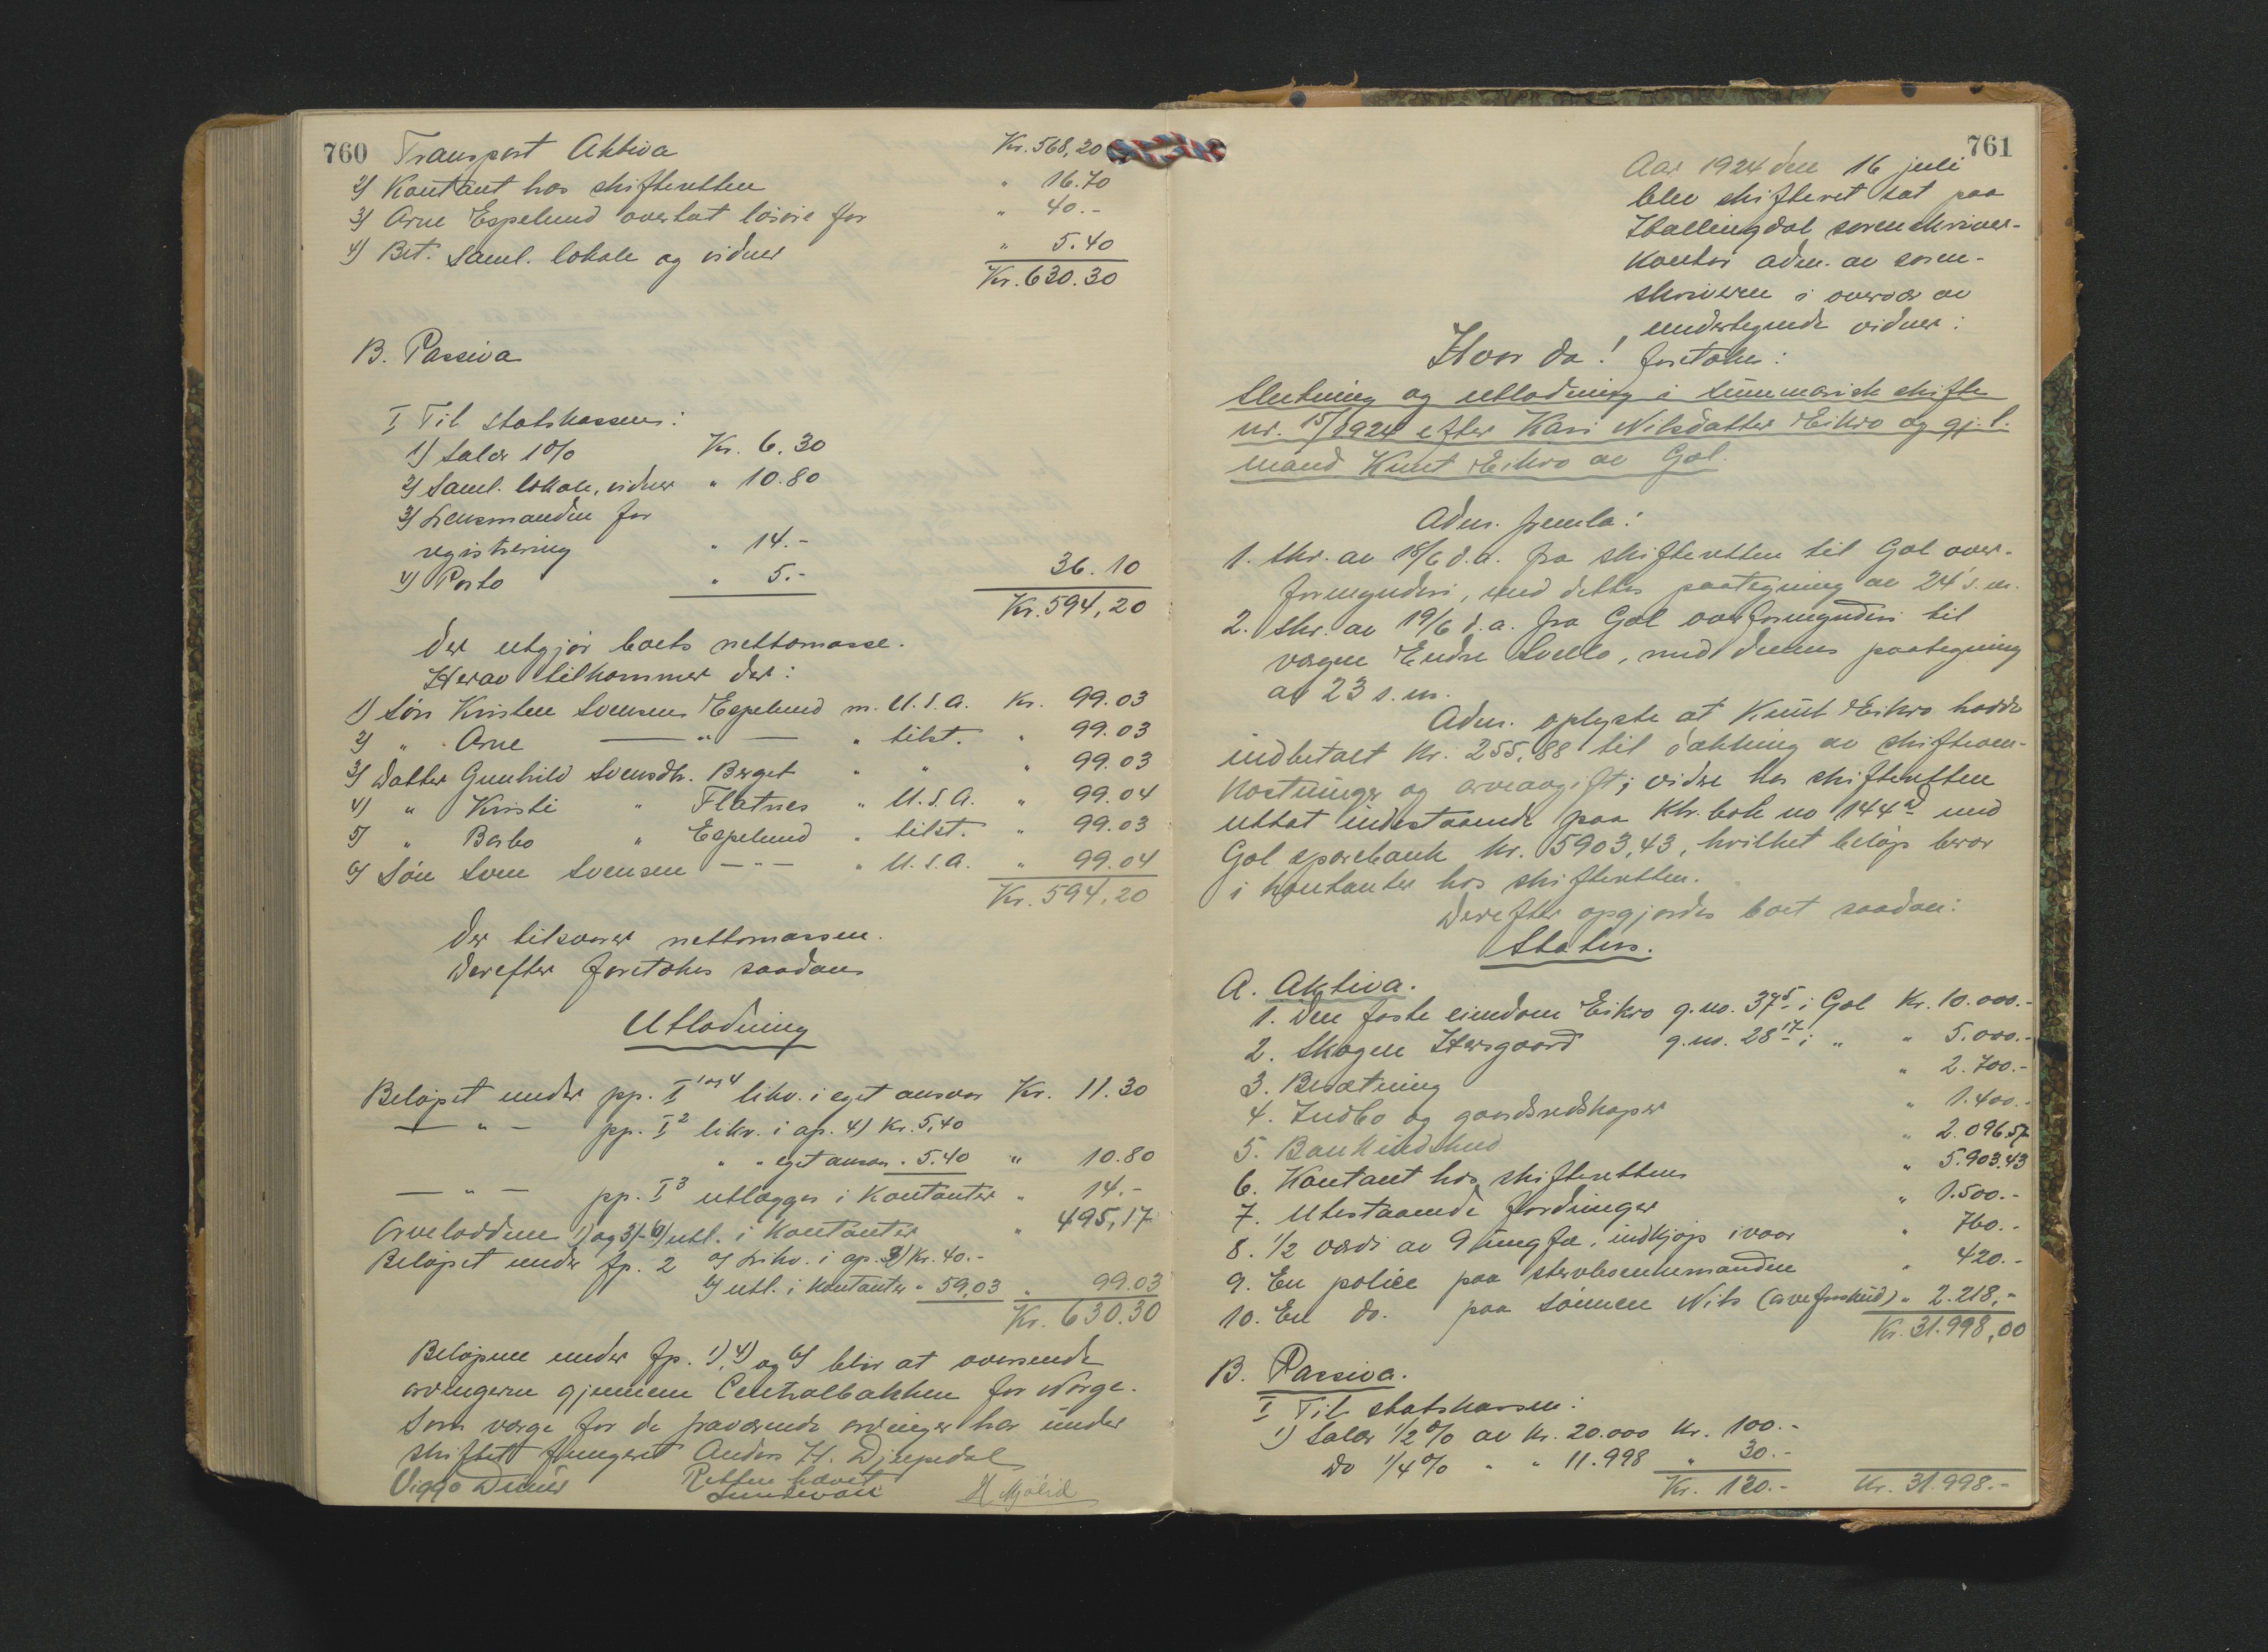 760 Transport Aktiva Kr. 568,20
2) Kontant hos skifteretten " 16.70
3) Arne Espelund overtat løsøre for " 40.-
4) Bet. saml. lokale og vidner " 5.40
Kr. 630.30
B. Passiva
I Til statskassen:
1) Salær 1% Kr. 6.30
2) Saml. lokale, vidner " 10.80
3) Lensmanden for
registrering " 14.-
4) Porto " 5.- 36.10
Kr. 594,20
der utgjør boets nettomasse.
Herav tilkommer der:
1) Søn Kristen Svensen Espelund m. U.S.A. Kr. 99.03
2) " Arne — " — " tilst. " 99.03
3) Datter Gunhild Svensdtr. Berget " " " 99.03
4) " Kristi " Flatnes " U.S.A. " 99.04
5) " Barbo " Espelund " tilst. " 99.03
6) Søn Sven Svensen — " — " U.S.A. " 99.04
Kr. 594,20
der tilsvarer nettomassen.
Derefter foretokes saadan
Utlodning
Beløpet under pp. I 1 og 4 likv. i eget ansvar Kr. 11.30
— " — pp. I 2 likv. i ap. 4) Kr. 5,40
" " eget ansvar " 5.40 " 10.80
— " — pp. I 3 utlægges i Kontanter " 14.-
Arveloddene 1) og 3)-6) utl. i Kontanter " 495,17
Beløpet under fp. 2 a) Likv. i ap. 3) Kr. 40.-
b) utl. i Kontanter " 59,03 " 99.03
Kr. 630.30
Beløpene under fp. 1), 4) og 6) blir at oversende
arvingerne gjennem Centralbakken for Norge.
Som værge for de fraværende arvinger har under
skiftet fungeret Anders H. Djupedal
Retten hævet
Viggo H Mjølid
761
Aar 1924 den 16 juli
blev skifteret sat paa
Hallingdal sorenskriver-
kontor adm. av soren-
skriveren i overvær av
undertegnede vidner:
Hvor da! foretokes:
Slutning og utlodning i summarisk skifte
nr. 15/1924 efter Kari Nilsdatter Eikro og gj.l.
mand Knut Eikro av Gol.
Adm. fremla:
1. Skr. av 18/6 d.a. fra skifteretten til Gol over-
formynderi, med dettes paategning av 24 s.m.
2. Skr. av 19/6 d.a. fra Gol overformynderi til
værgen Endre Svello, med dennes paategning
av 23 s.m.
Adm. oplyste at Knut Eikro hadde
indbetalt Kr. 255,88 til dækning av skifteom-
kostninger og arveavgift; videre har skifteretten
uttat indestaaende paa Ktr. bok no 144 med
Gol sparebank Kr. 5903,43, hvilket beløp beror
i kontanter hos skifteretten.
Derefter opgjordes boet saadan:
Status.
A. Aktiva.
1. Den faste eiendom Eikro g.no. 37 5 i Gol Kr. 10.000.-
2. Skogen Hersgaard g.no. 28 17 i " " 5.000.-
3. Besætning " 2.700.-
4. Indbo og gaardsredskaper " 1.400.-
5. Bankindskud " 2.096.57
6. Kontant hos skifteretten " 5.903.43
7. Utestaaende fordringer " 1.500.-
8. 1/2 værdi av 9 ungfæ, indkjøp ivaar " 760.-
9. En police paa stervboenkemanden " 420.-
10. En do. paa sønnen Nils (arveforskud) " 2.218.-
Kr. 31.998,00
B. Passiva.
I Til statskassen:
1) Salær 1/2% av Kr. 20.000 Kr. 100.-
Do 1/4% " " 11.998 " 30.-
Kr. 130.- Kr. 31.998.-